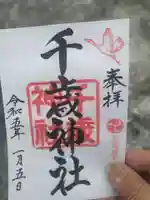 奉拝
千歳神社
千歳
神社
令和五年
一月五日